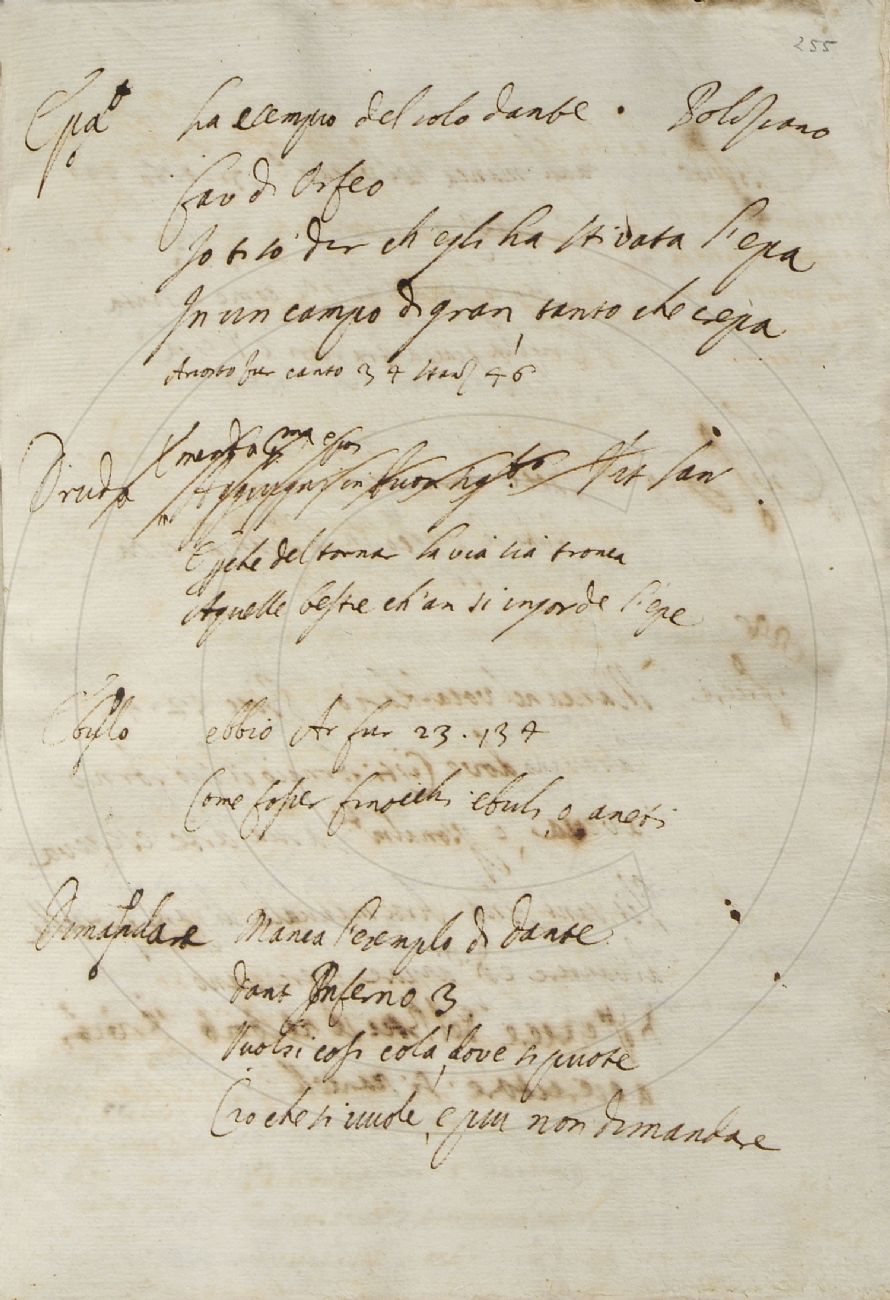 255
Epa ha exempio del solo dante. Poliziano
fav di Orfeo
Io ti so dir ch'egli ha stivata l'epa
In un campo di gran, tanto che crepa
Ariosto fur canto 34 stanz 46
Druda
E perche del tornar la via sia tronca
A quelle bestie ch'an si ingorde l'epe
Ebulo ebbio Ar fur 23. 134
Come fosser finocchi ebuli o aneti
Dimandare Manca l'exemplo di Dante
dant Inferno 3
Vuolsi cosi colà, dove si puote
Cio che si vuole, e piu non dimandare